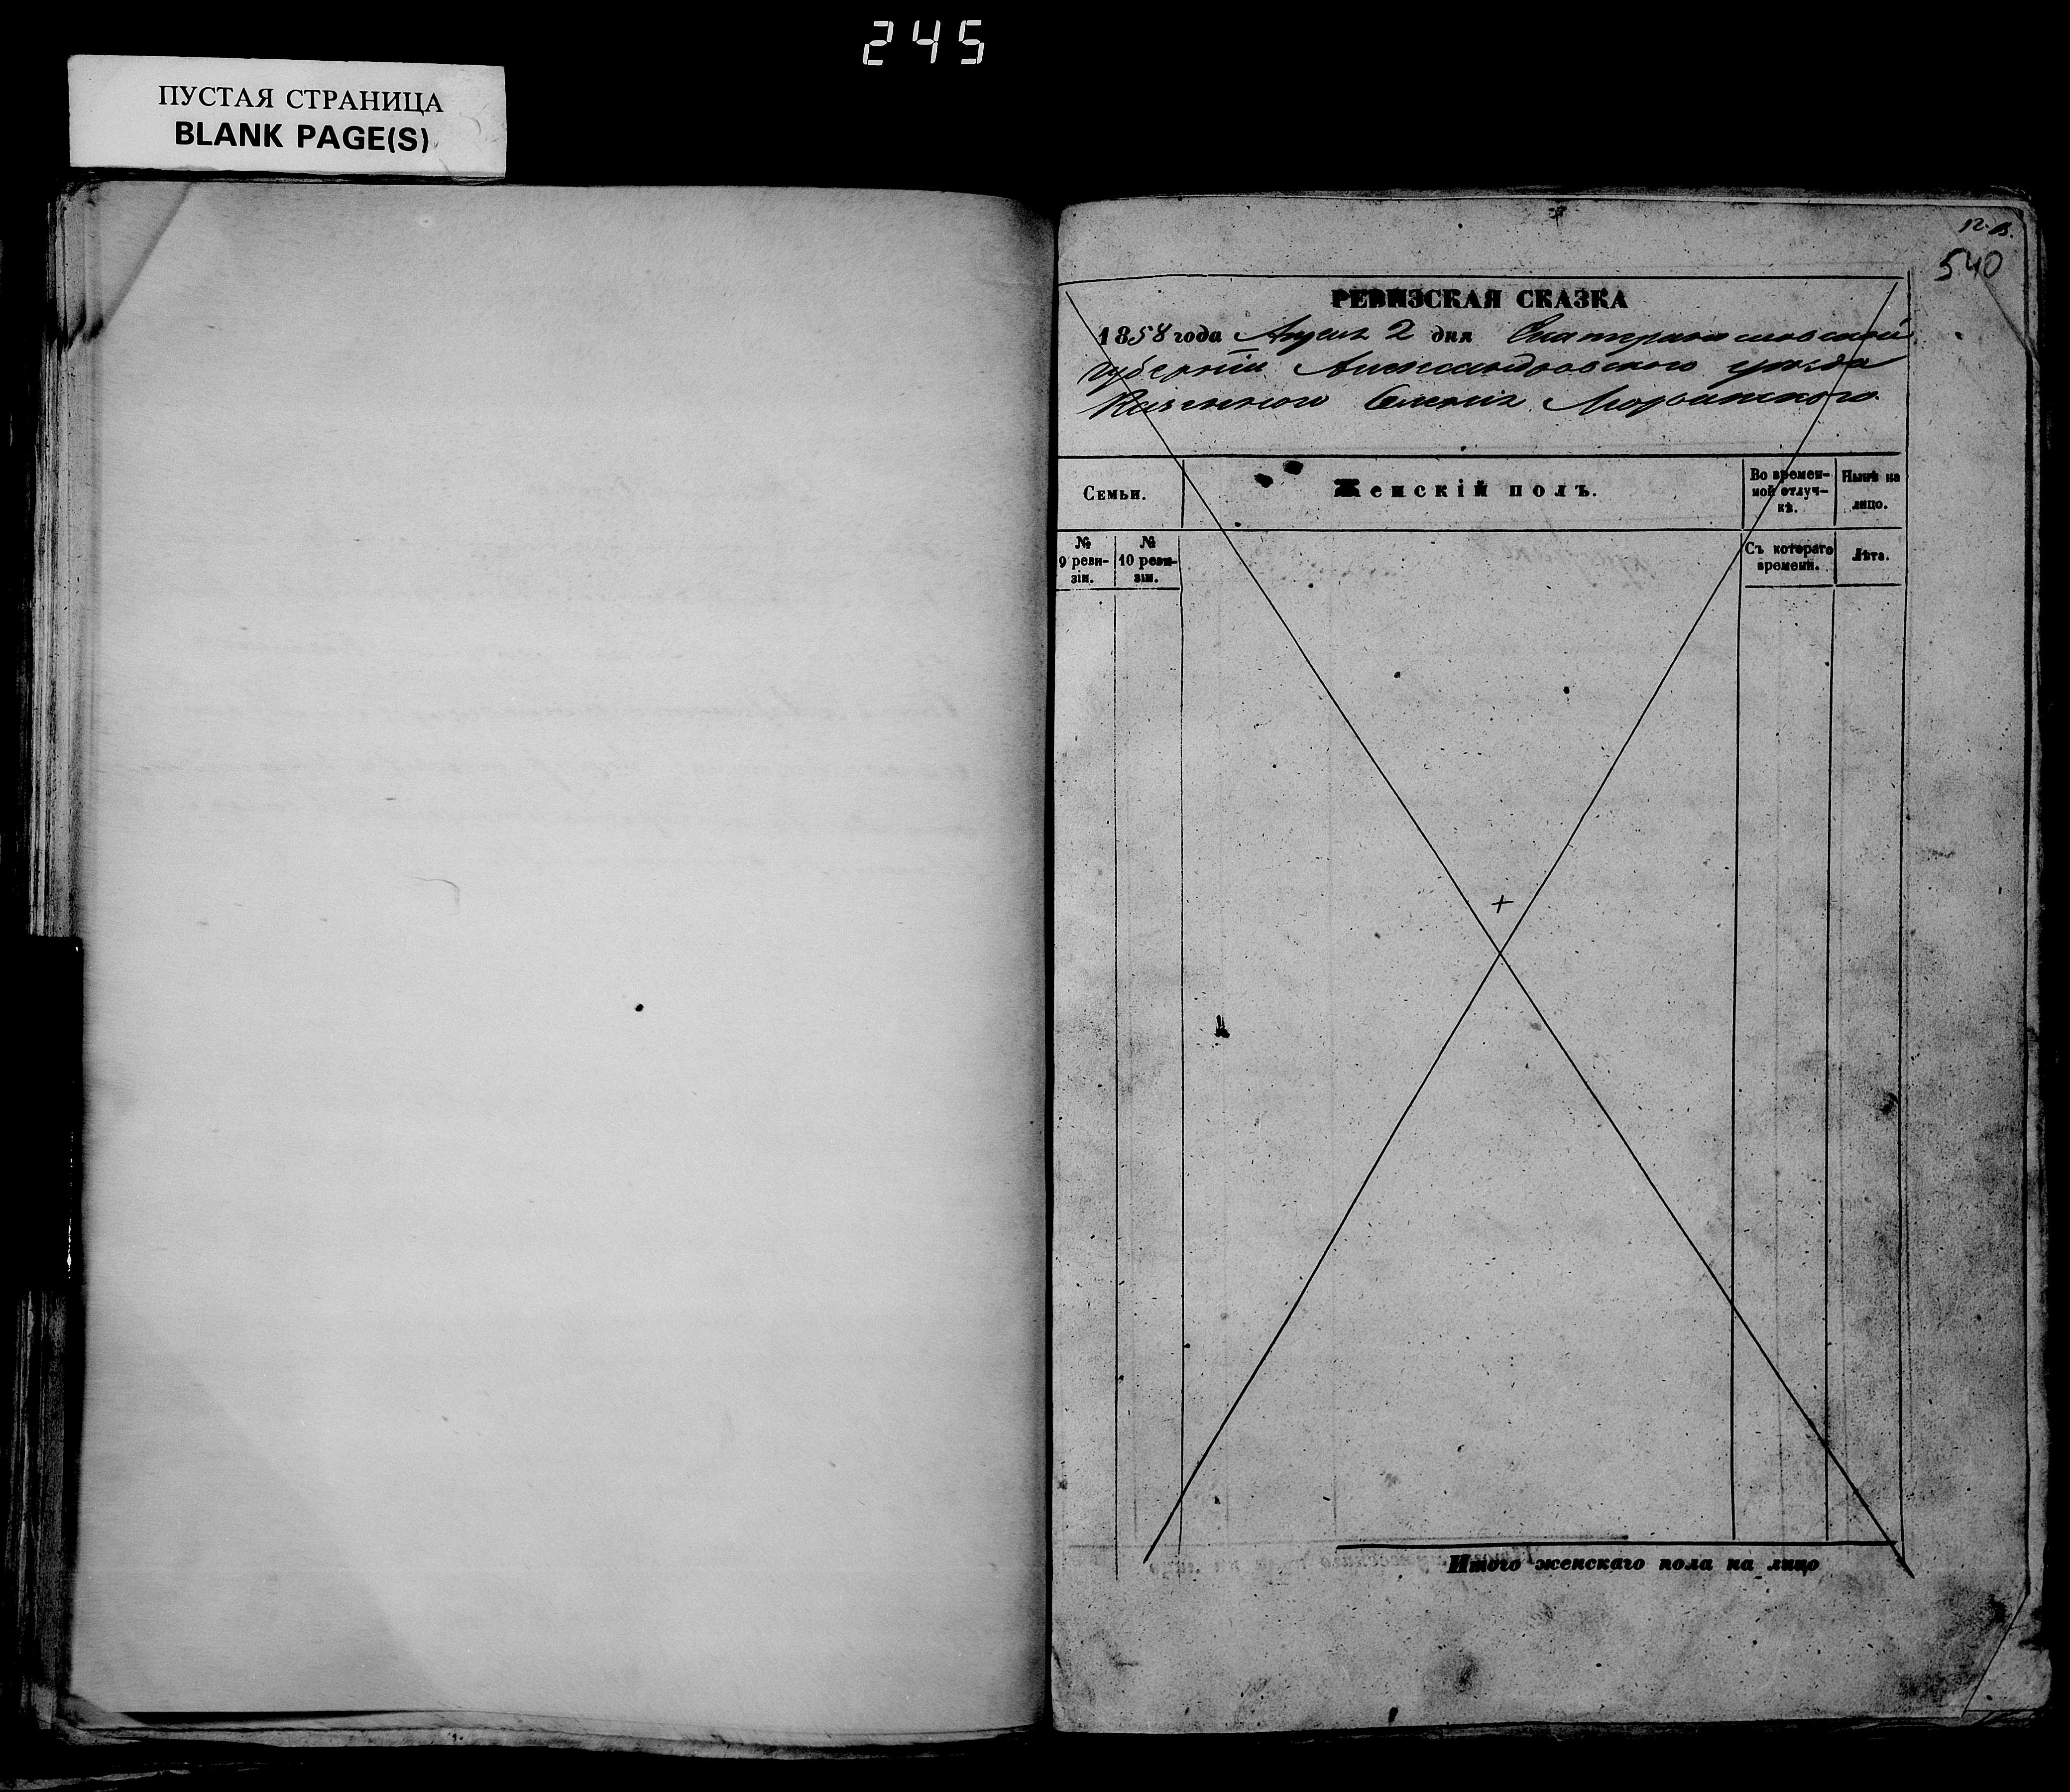 245
ПУСТАЯ СТРАНИЦА
BLANK PAGE(S)
540
РЕВИЗСКАЯ СКАЗКА
1858 года Апреля 2 дня Екатеринославской
губернiи Александровского уезда
Казенного Селенiя
Семьи.
Женскiй полъ.
Во времен-
ной отлуч-
кѣ.
Нынѣ на
лицо.
№
9 реви-
зiи.
№
10 реви-
зiи.
Съ котораго
времени.
Лѣта.
Итого женскаго пола на лицо